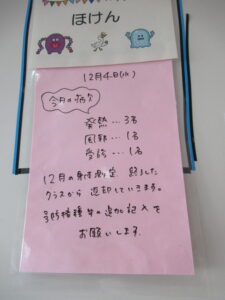 ほけん
12月4日(火)
今月の病欠
発熱…3名
風邪…1名
受診…1名
12月の身体測定 終了した
クラスから 返却していきます。
予防接種等の追加記入を
お願いします。